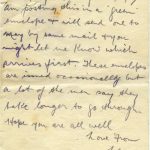 am posting this in a "green"
envelope & will send one to
May by same mail & you
might let me know which
arrives first. These envelopes
are issued occasionally but
a lot of the men say they
take longer to go through.
Hope you are all well
Love From